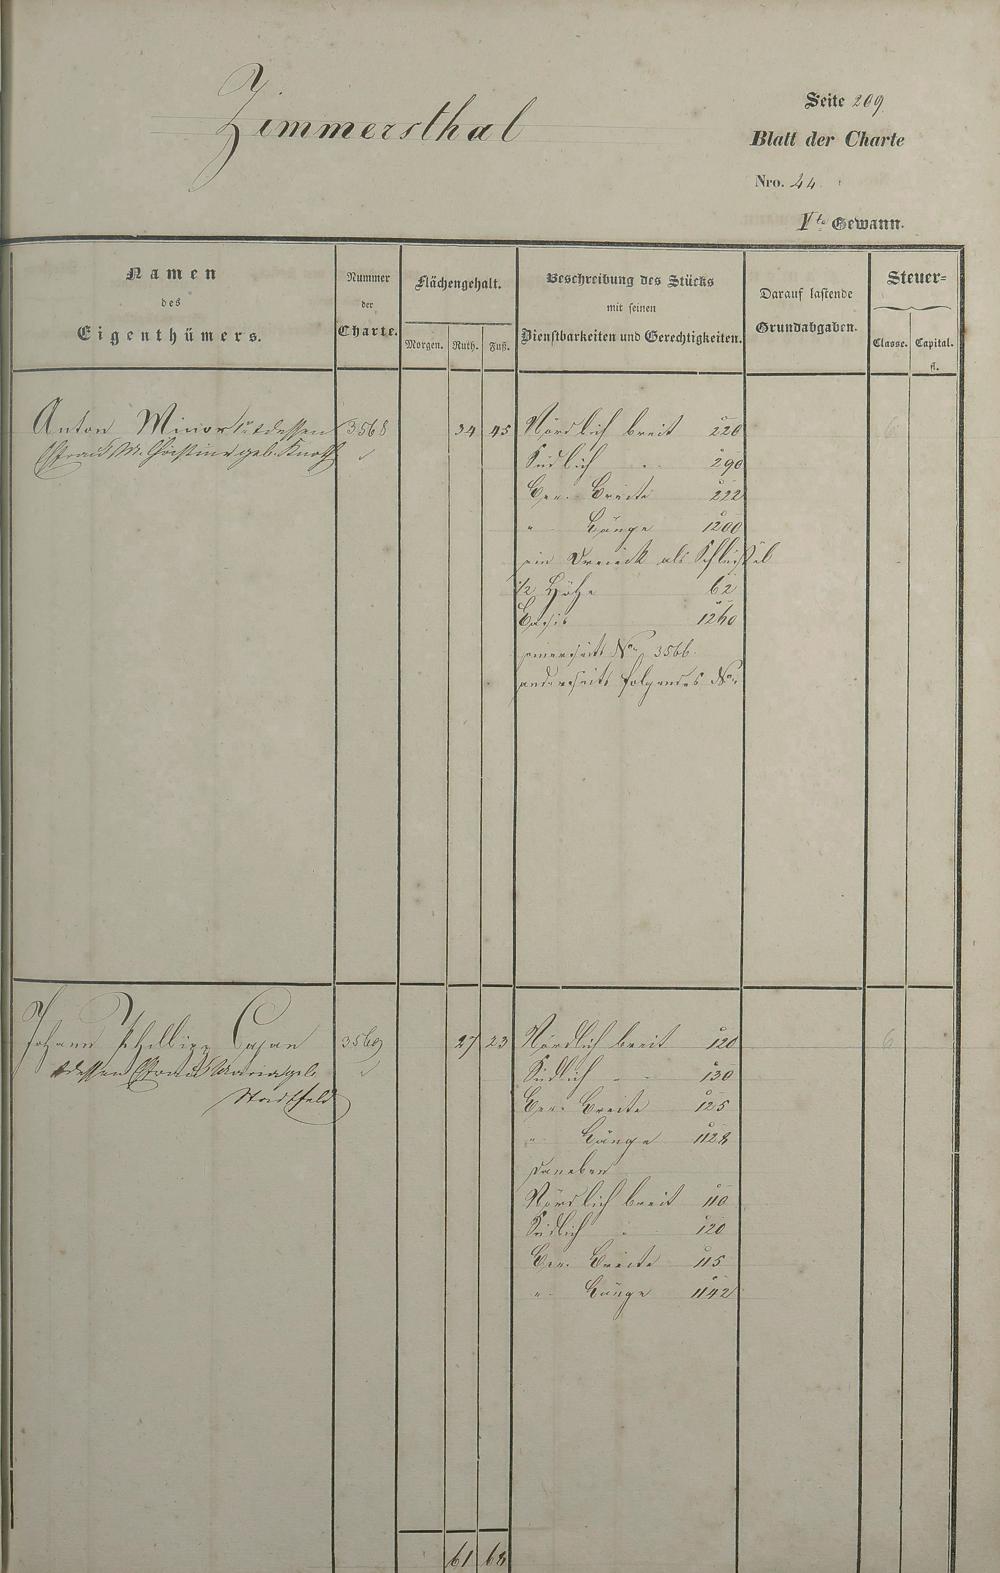 Zimmersthal
Seite 209
Blatt der Charte
Nro. 44
1te Gewann.
Namen
des
Eigenthümers.
Nummer
der
Charte.
Flächengehalt.
Morgen. Ruth. Fuß.
Beschreibung des Stücks
mit seinen
Dienstbarkeiten und Gerechtigkeiten.
Darauf lastende
Grundabgaben.
Steuer=
Classe. Capital.
fl.
Anton dessen 3568 34 45 Nördlich breit 220 6
Frau M. Christine geb. Südlich " 290
Gen. Breite 222
" Länge 1200
ein Dreieck als Schlüssel
1/2 Höhe 62
Basis 1260
einerseits No 3566.
anderseits folgendes No
Johann Philipp Cajan 3569 27 23 Nördlich breit 120 6
dessen Frau geb. Südlich " 130
Stadtfeld Gen. Breite 125
" Länge 1128
daneben
Nördlich breit 110
Südlich " 120
Gen. Breite 115
" Länge 1142
61 68